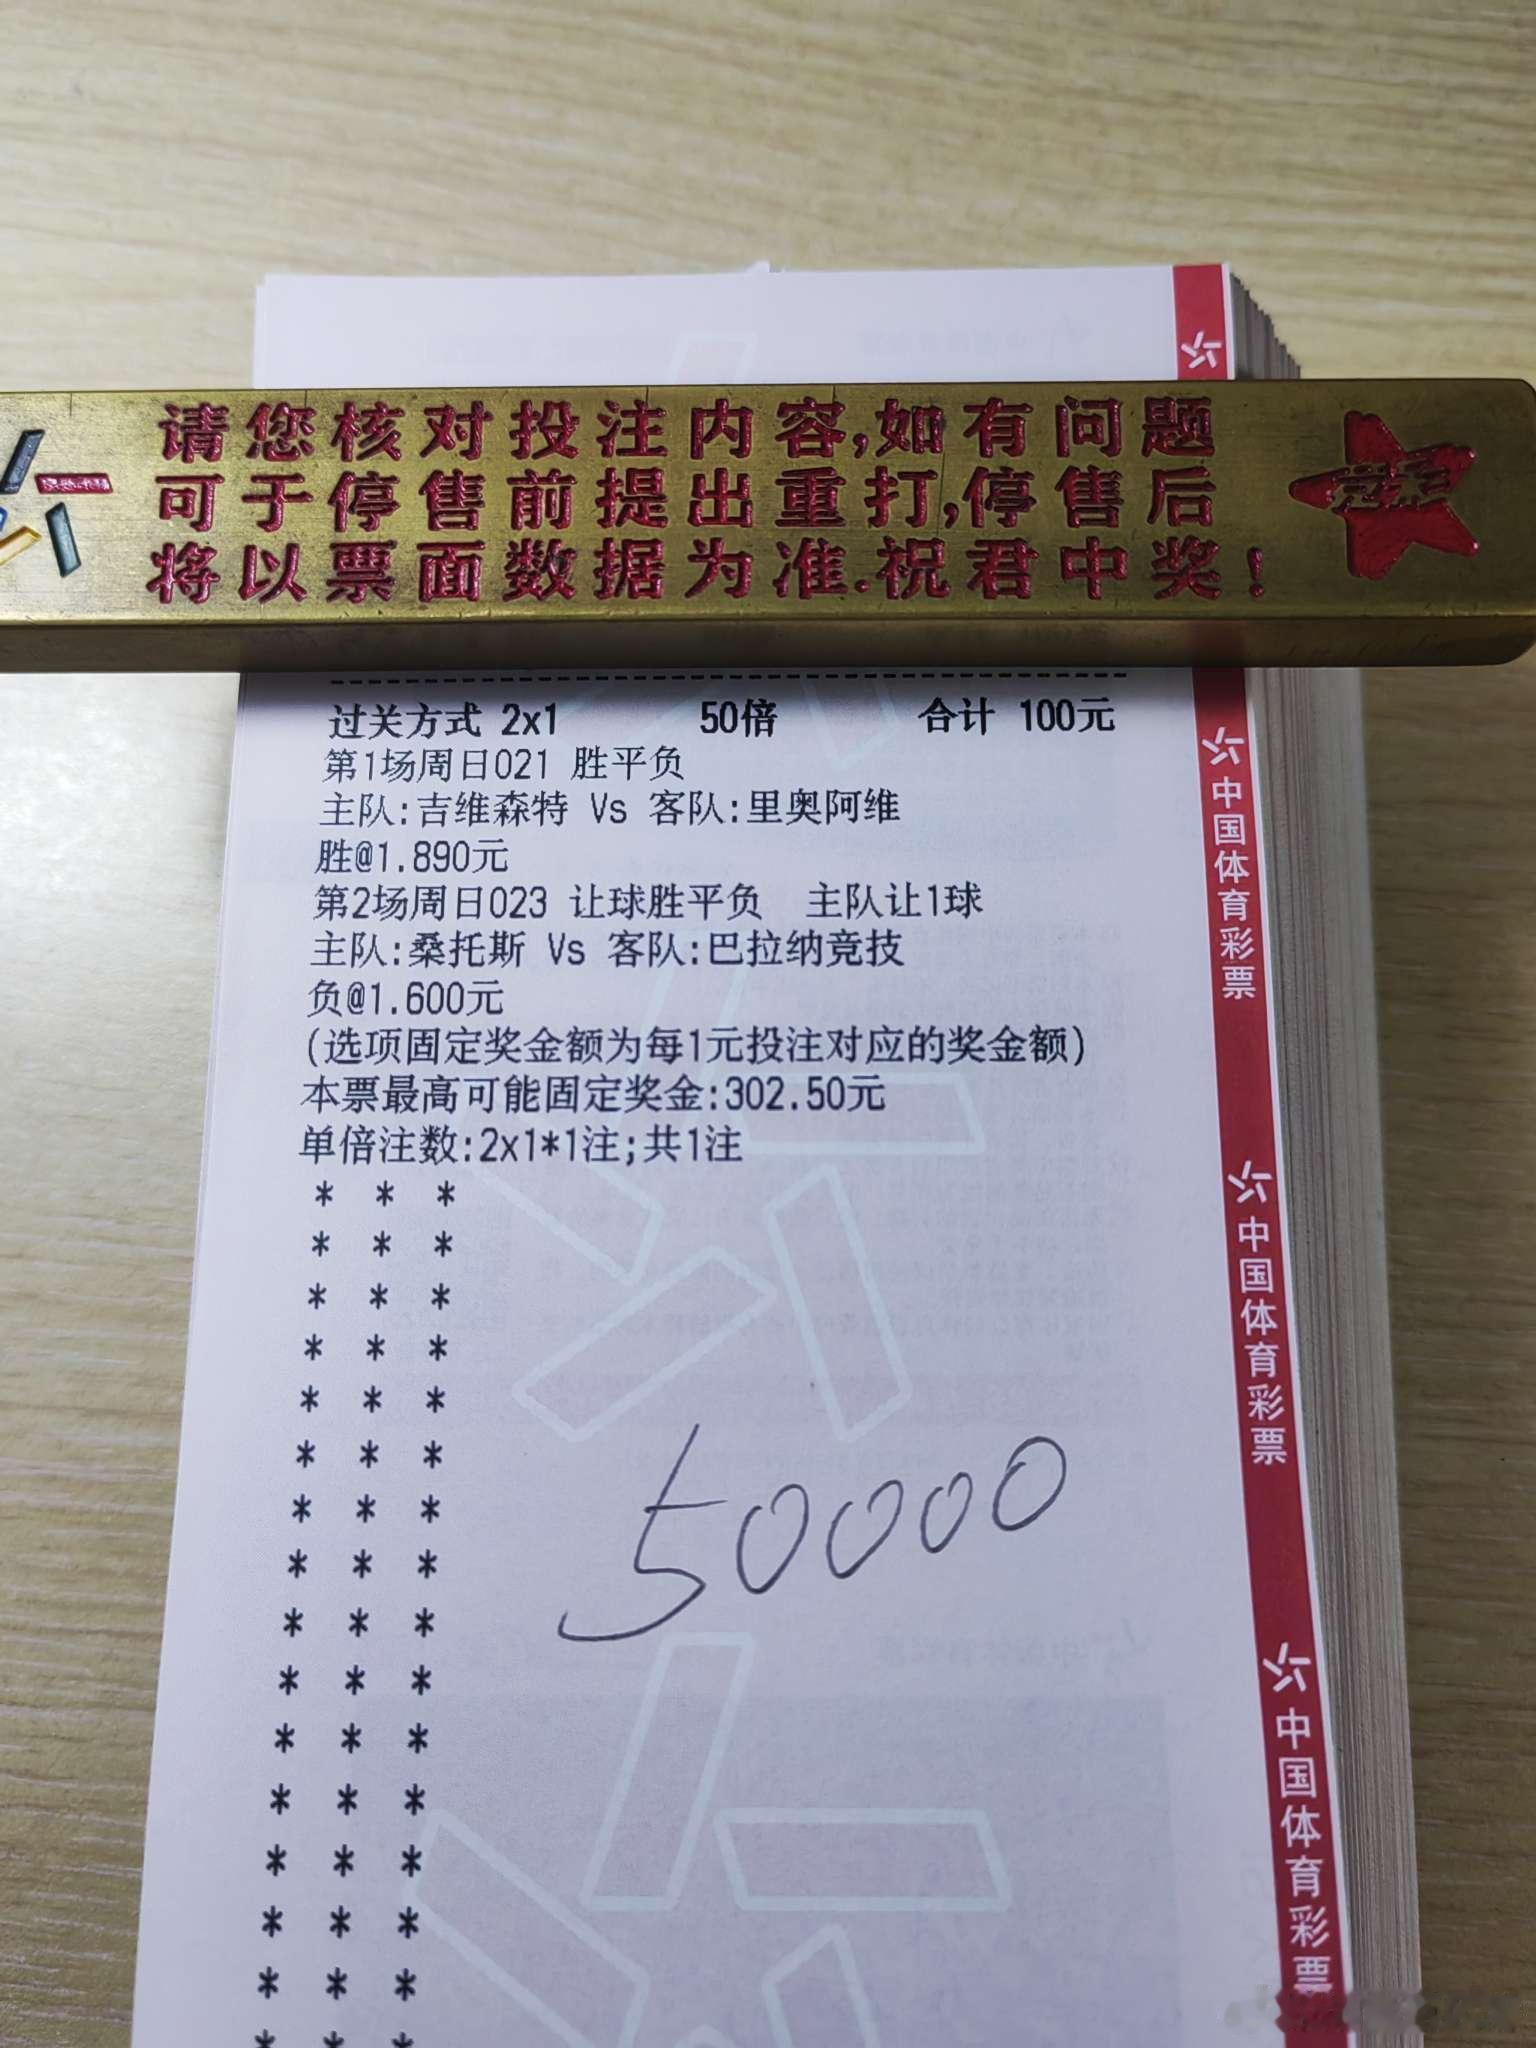 请您核对投注内容,如有问题
可于停售前提出重打,停售后
将以票面数据为准.祝君中奖!
过关方式 2x1 50倍 合计 100元
第1场周日021 胜平负
主队:吉维森特 Vs 客队:里奥阿维
胜@1.890元
第2场周日023 让球胜平负 主队让1球
主队:桑托斯 Vs 客队:巴拉纳竞技
负@1.600元
(选项固定奖金额为每1元投注对应的奖金额)
本票最高可能固定奖金:302.50元
单倍注数:2x1*1注;共1注
* * *
* * *
* * *
* * *
* * *
* * *
* * *
* * *
* * *
* * *
* * *
* * *
* * *
* * *
* * *
* * *
50000
中国体育彩票
中国体育彩票
中国体育彩票